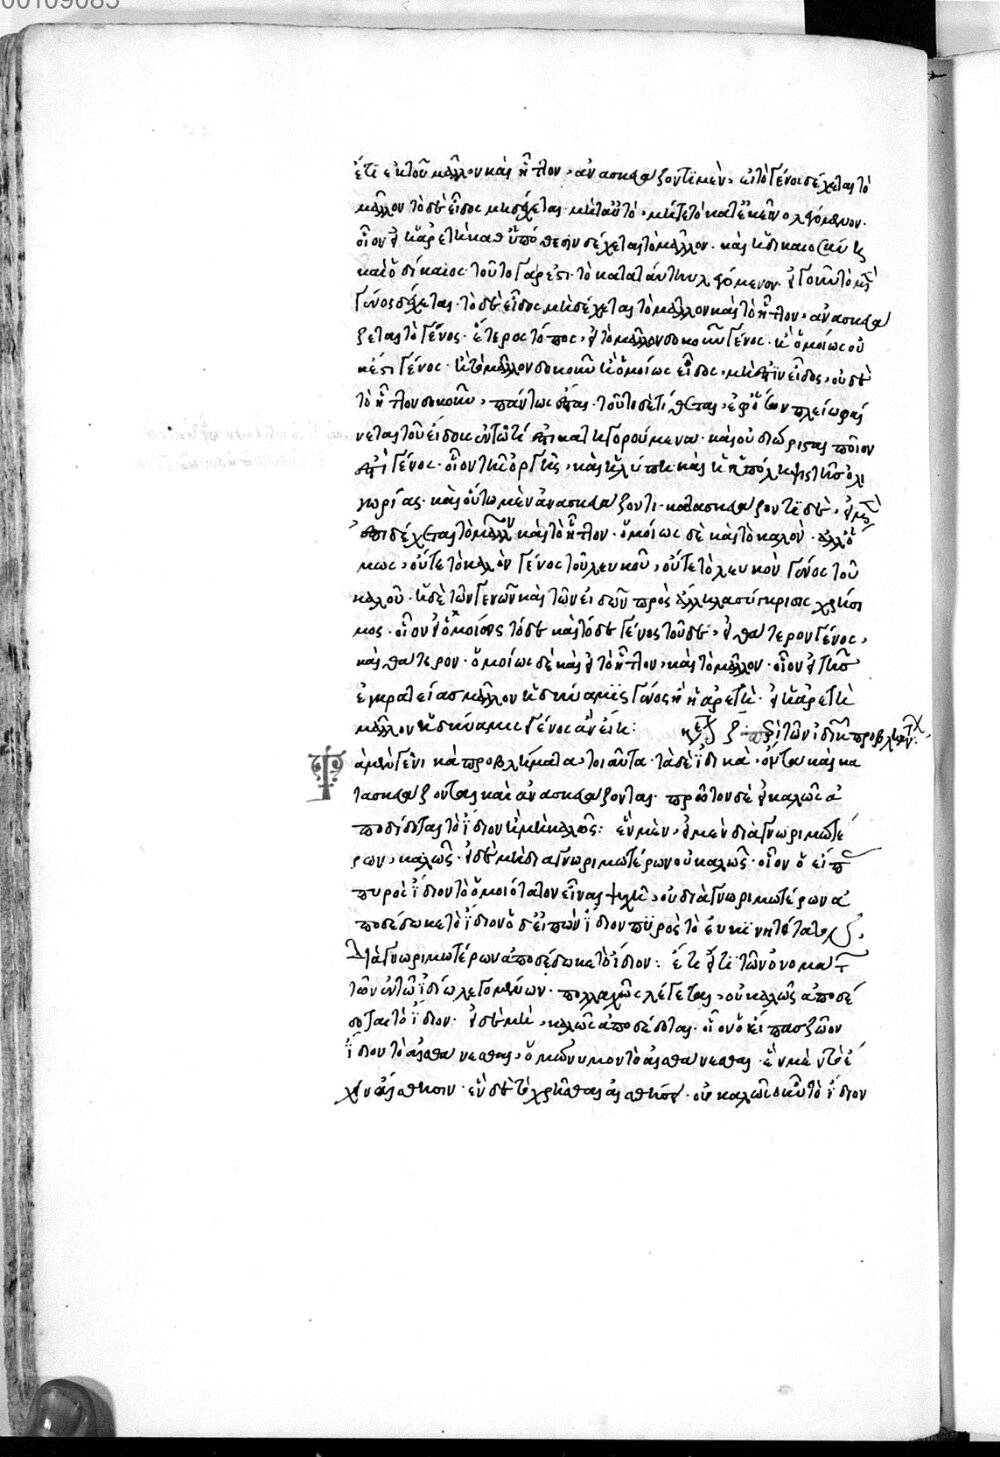 ἔτι ἐκ τοῦ μᾶλλον καὶ ἧττον, ἀνασκευάζοντι μὲν, εἰ τὸ γένος δέχεται τὸ
μᾶλλον τὸ δὲ εἶδος μὴ δέχεται μήτ' αὐτό, μήτε τὸ κατ' ἐκεῖνο λεγόμενον.
οἷον εἰ ἡ ἀρετὴ καθ' ὑπόθεσιν δέχεται τὸ μᾶλλον. καὶ ἡ δικαιοσύνη
καὶ ὁ δίκαιος· τοῦτο γάρ ἐστι τὸ κατὰ ταύτην λεγόμενον. εἰ γοῦν τὸ μὲν
γένος δέχεται· τὸ δὲ εἶδος μὴ δέχεται τὸ μᾶλλον καὶ τὸ ἧττον, ἀνασκευά
ζεται τὸ γένος. ἕτερος τόπος, εἰ τὸ μᾶλλον δοκοῦν γένος. ἢ ὁμοίως οὐ
κ ἔστι γένος. ἢ τὸ μᾶλλον δοκοῦν ἢ ὁμοίως εἶδος, μὴ ἔστιν εἶδος, οὐδὲ
τὸ ἧττον δοκοῦν, πάντως ἔσται. τοῦτο δὲ τίθεται, ἐφ' ὅσων πλείω φαί
νεται τοῦ εἴδους ἐν τῷ τί ἐστι κατηγορούμενα. καὶ οὐ διώρισται ποῖον
ἐστὶ γένος. οἷον τῆς ὀργῆς, καὶ ἡ λύπη καὶ ἡ ὑπόληψις τῆς ὀλι
γωρίας. καὶ οὕτω μὲν ἀνασκευάζοντι. κατασκευάζοντι δὲ, εἰ μὲν
ἐπιδέχεται τὸ μᾶλλον καὶ τὸ ἧττον. ὁμοίως δὲ καὶ τὸ καλόν. ἀλλ' ὅ
μως, οὔτε τὸ καλὸν γένος τοῦ λευκοῦ, οὔτε τὸ λευκὸν γένος τοῦ
καλοῦ. ἡ δὲ τῶν γενῶν καὶ τῶν εἰδῶν πρὸς ἄλληλα σύγκρισις χρήσι
μος. οἷον εἰ ὁμοίως τόδε καὶ τόδε γένος τοῦδε, εἰ θάτερον γένος,
καὶ θάτερον. ὁμοίως δὲ καὶ εἰ τὸ ἧττον, καὶ τὸ μᾶλλον. οἷον εἰ τῆς
ἐγκρατείας μᾶλλον ἡ δύναμις γένος ἢ ἡ ἀρετή. εἰ ἡ ἀρετὴ
μᾶλλον ἡ δύναμις γένος ἂν εἴη:
περὶ τῶν ἰδικῶν προβλημάτων:
Τὰ μὲν γενικὰ προβλήματα, τοιαῦτα. τὰ δὲ ἰδικὰ, οὕτω καὶ κα
τασκευάζονται καὶ ἀνασκευάζονται. πρῶτον δὲ εἰ καλῶς ἀ
ποδίδοται τὸ ἴδιον ἢ μὴ καλῶς: ἓν μὲν, εἰ μὲν διὰ γνωριμωτέ
ρων, καλῶς. εἰ δὲ μὴ διὰ γνωριμωτέρων οὐ καλῶς. οἷον ὁ εἰπὼν
πυρὸς ἴδιον τὸ ὁμοιότατον εἶναι ψυχῇ, οὐ διὰ γνωριμωτέρων ἀ
ποδέδωκε τὸ ἴδιον ὁ δ' εἰπὼν ἴδιον πυρὸς τὸ εὐκινητότατον
διὰ γνωριμωτέρων ἀποδέδωκε τὸ ἴδιον: ἔτι εἴ τι τῶν ὀνομά
των ἐν τῷ ἰδίῳ λεγομένων. πολλαχῶς λέγεται, οὐ καλῶς ἀποδέ
δοται τὸ ἴδιον. εἰ δὲ μὴ, καλῶς ἀποδέδοται. οἷον ὁ εἴπας ζῴου
ἴδιον τὸ αἰσθάνεσθαι, ὁμώνυμον τὸ αἰσθάνεσθαι. ἓν μὲν τὸ ἔ
χειν αἴσθησιν. ἓν δὲ τὸ χρῆσθαι αἰσθήσει. οὐ καλῶς οὖν τὸ ἴδιον